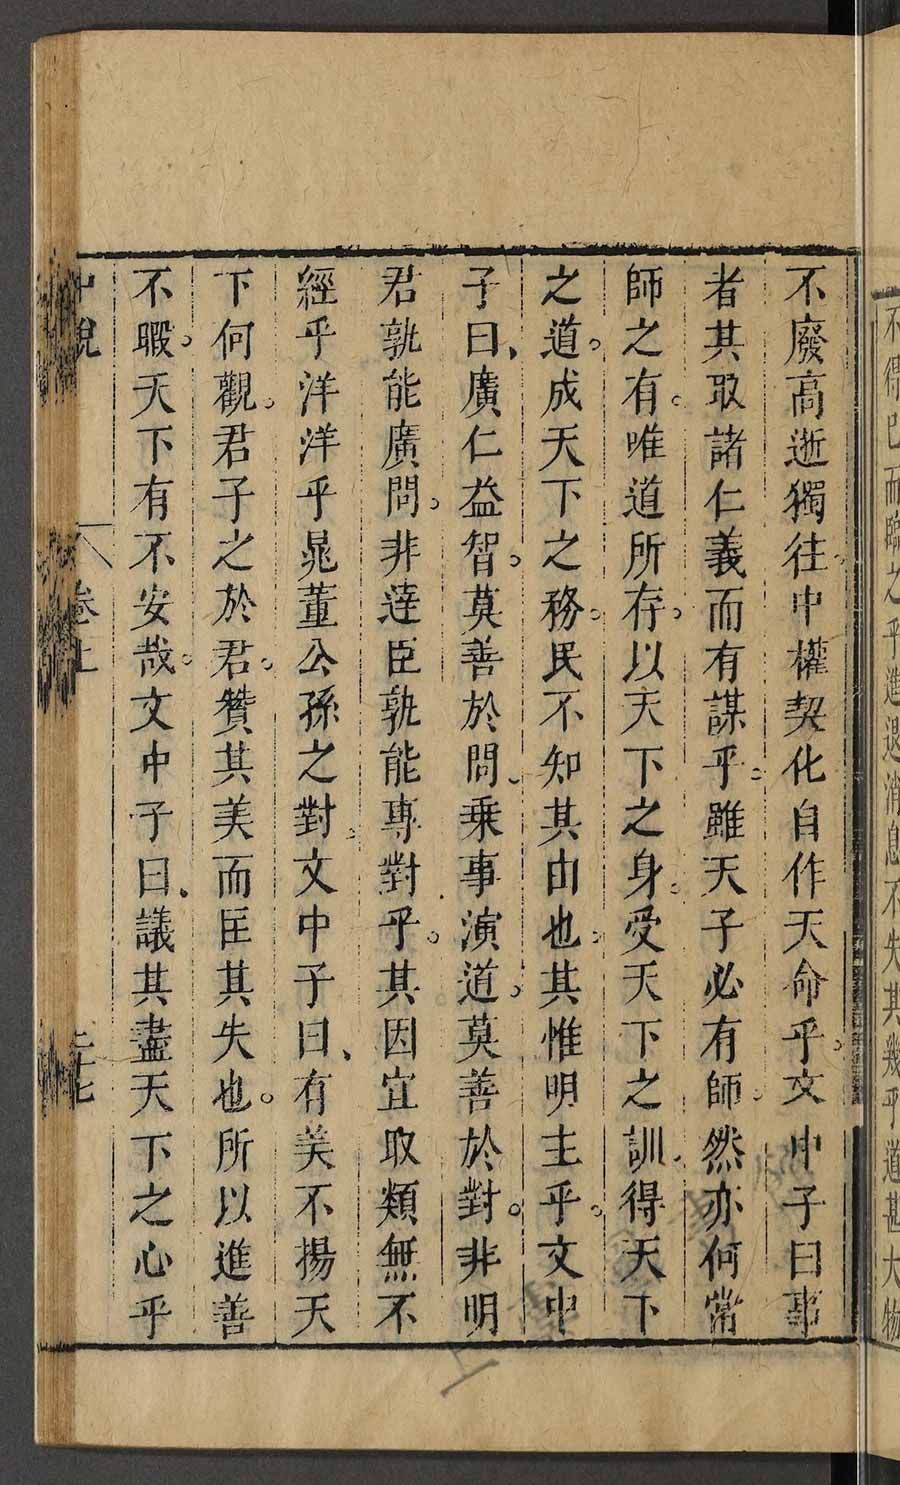 不得已而臨之乎進退消息不失其幾乎道甚大物
不廢高逝獨往中權契化自作天命乎文中子曰事
者其取諸仁義而有謀乎雖天子必有師然亦何常
師之有。唯道所存。以天下之身。受天下之訓。得天下
之道。成天下之務。民不知其由也。其惟明主乎。文中
子曰、廣仁益智。莫善於問、乗事演道。莫善於對。非明
君孰能廣問。非達臣孰能專對乎。其因宜取類無不
經乎洋洋乎晁董公孫之對。文中子曰、有美不揚天
下何觀。君子之於君。贊其美而匡其失也。所以進善
不暇。天下有不安哉。文中子曰、議其盡天下之心乎
中說 卷上 二十七